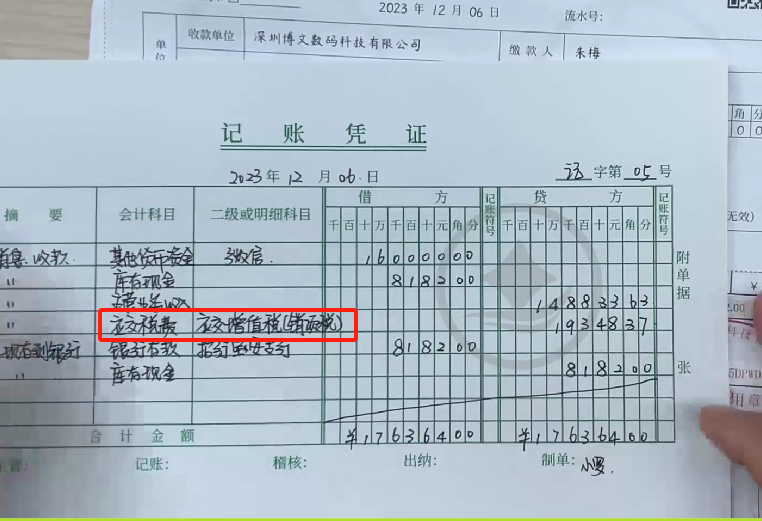 2023年12月06日
流水号:
单位
收款单位
深圳博文数码科技有限公司
缴款人
朱梅
角分
00
记账凭证
2023年12月06日
记字第05号
摘要
会计科目
二级或明细科目
借方
记账符号
贷方
记账符号
千百十万千百十元角分
千百十万千百十元角分
收款 其他货币资金 微信 16000000
" 库存现金 818200
" 主营业务收入 14883363
" 应交税费 应交增值税(销项税) 1934837
现存到银行 银行存款 招行宝安支行 818200
" 库存现金 818200
合计金额 ¥17636400 ¥17636400
附单据
张
记账:
稽核:
出纳:
制单:小罗.
无效)
¥
5DPWD
用章